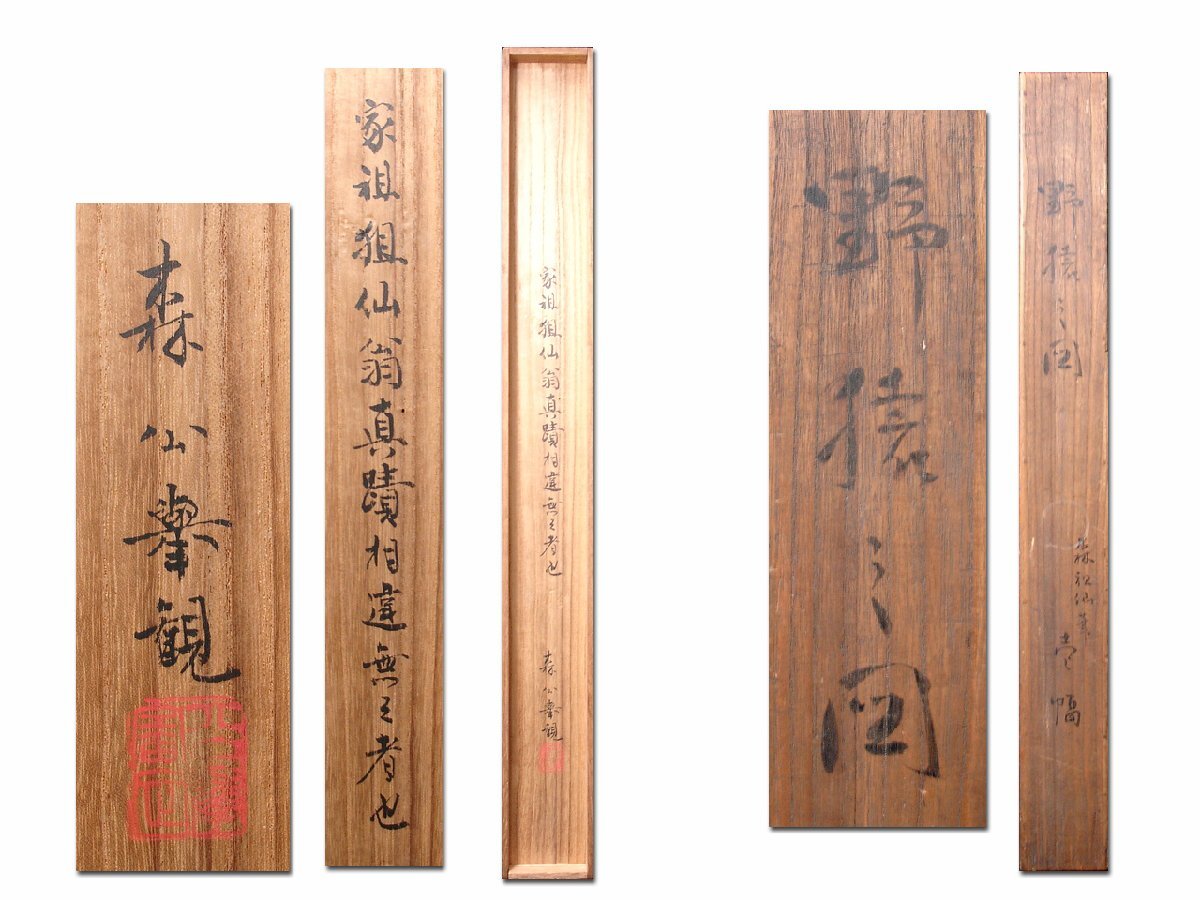 野猿之図
野猿之図
森祖仙筆
壱幅
家祖狙仙翁真蹟相違無之者也
森公擧観
家祖狙仙翁真蹟相違無之者也
森公擧観